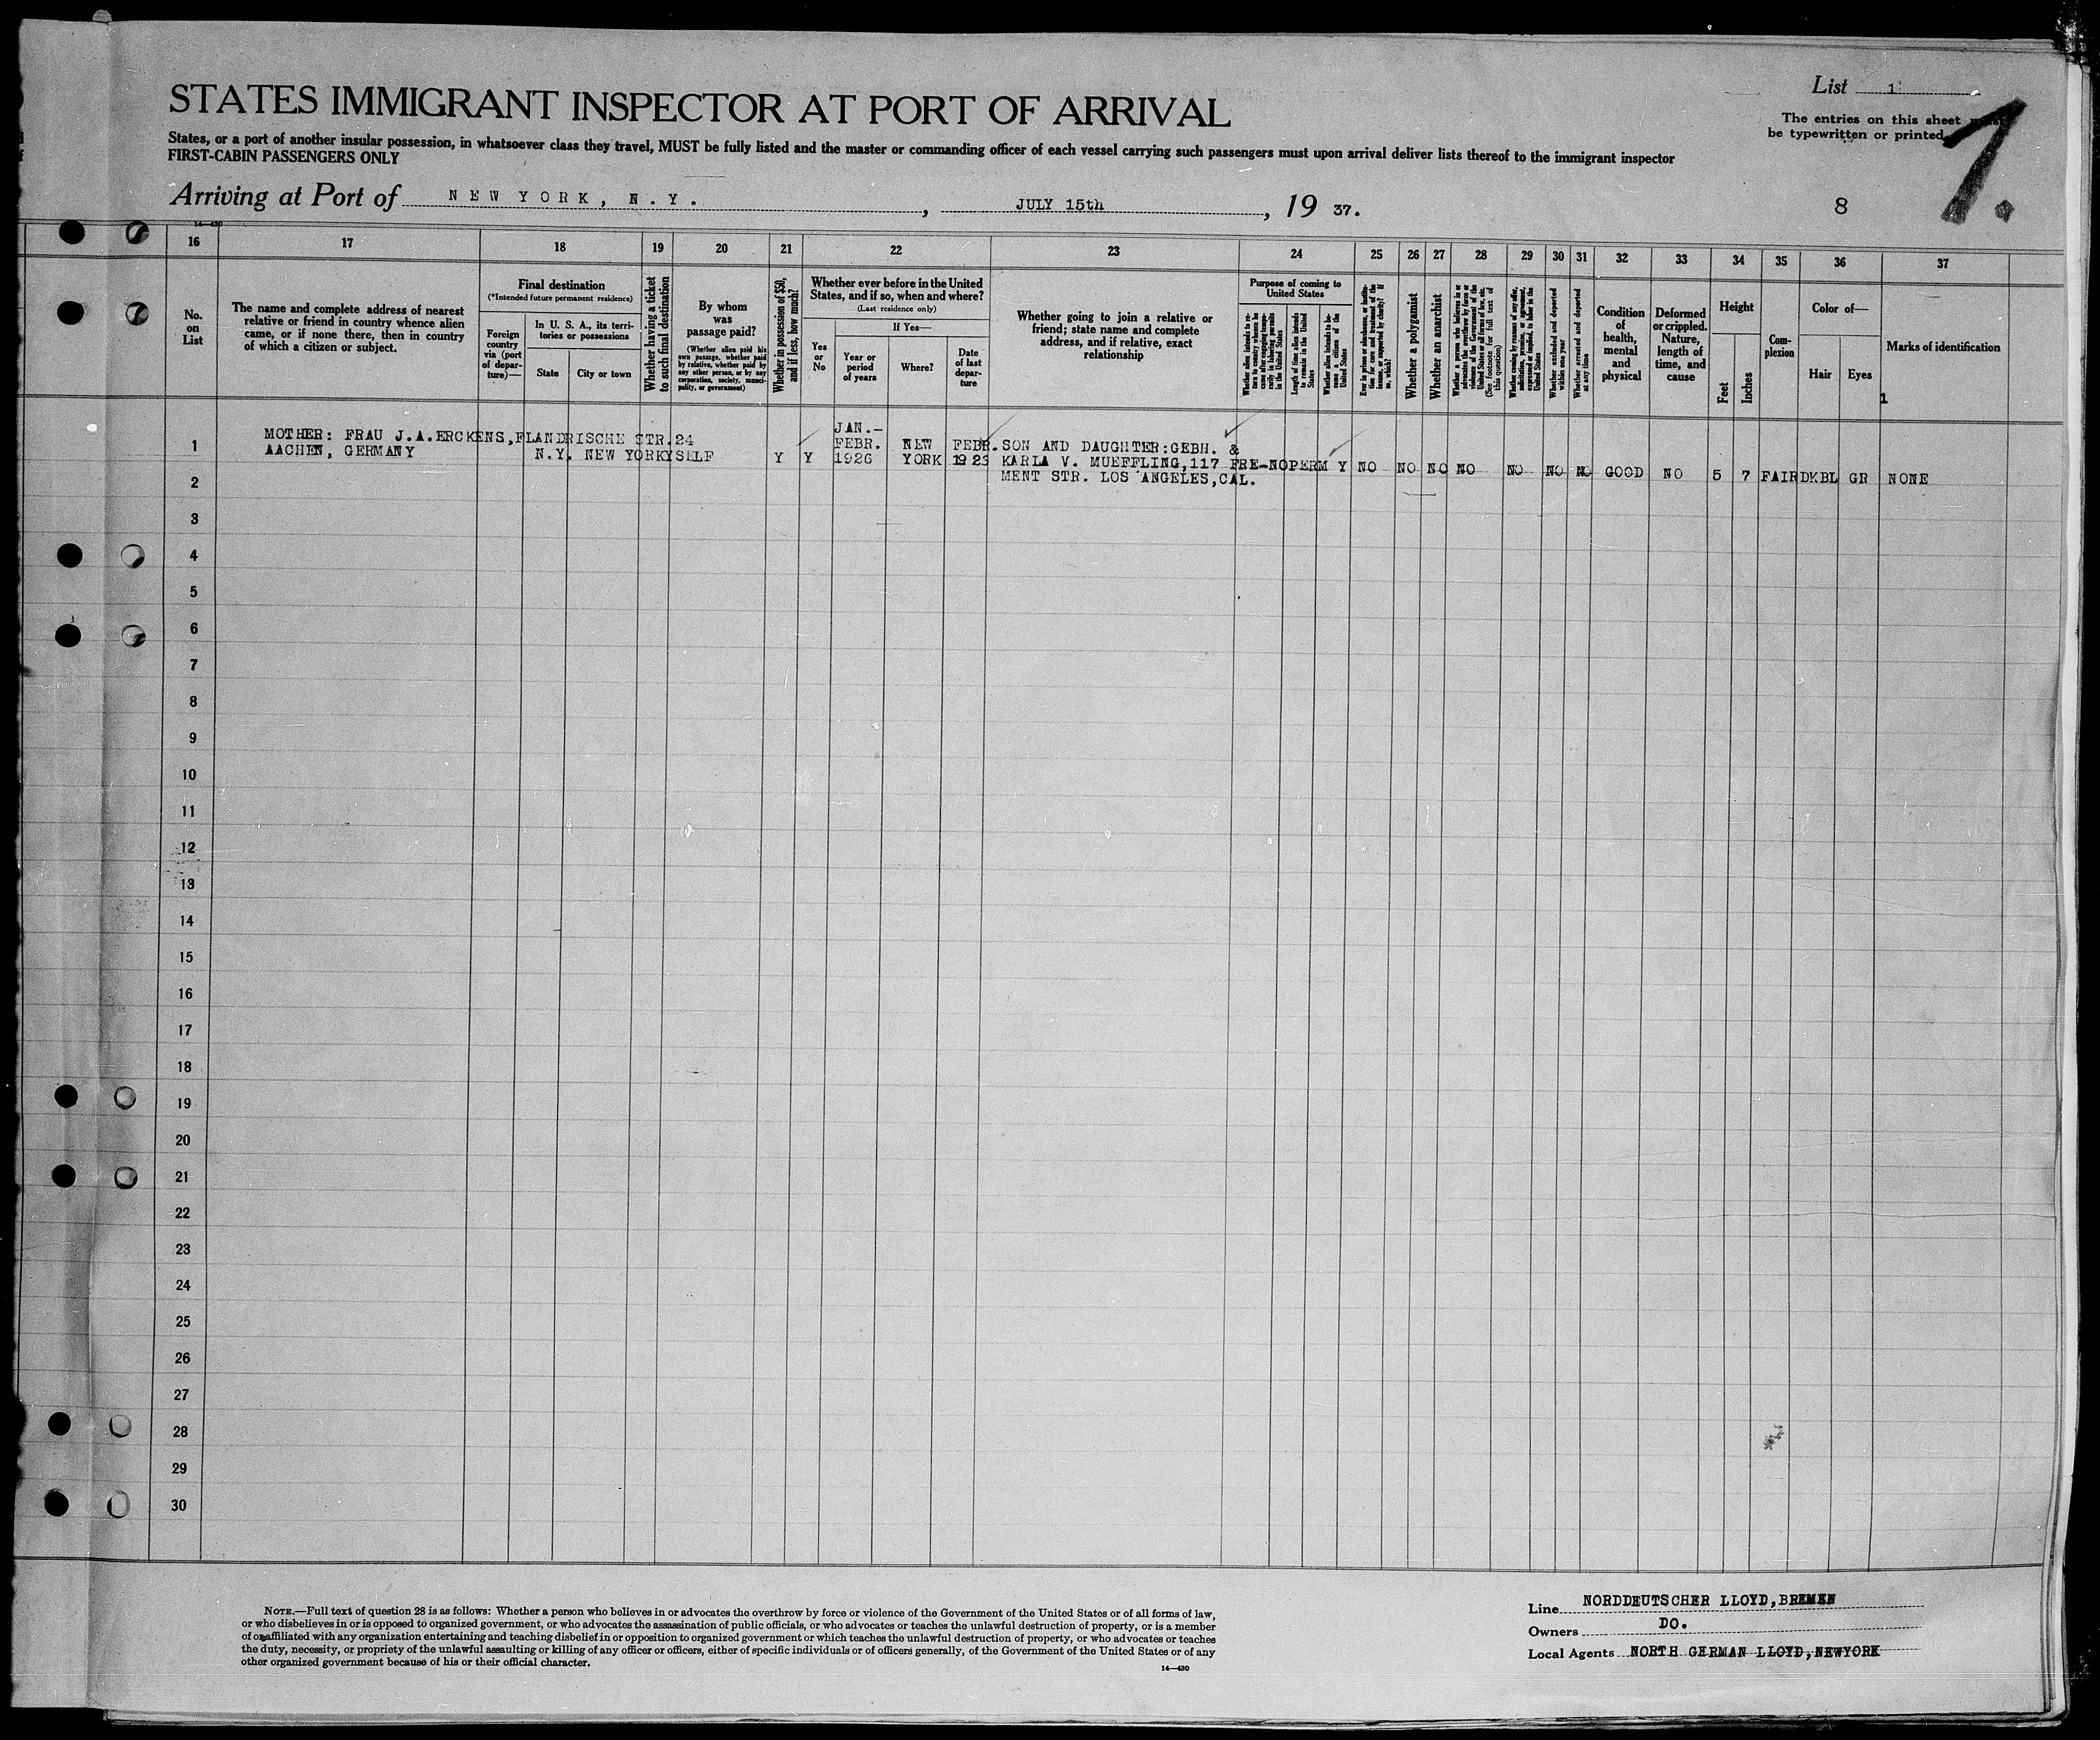 List 1
STATES IMMIGRANT INSPECTOR AT PORT OF ARRIVAL
The entries on this sheet
be typewritten or printed
1.
States, or a port of another insular possession, in whatsoever class they travel, MUST be fully listed and the master or commanding officer of each vessel carrying such passengers must upon arrival deliver lists thereof to the immigrant inspector
FIRST-CABIN PASSENGERS ONLY
Arriving at Port of NEW YORK, N.Y., JULY 15th, 19 37.
8
14-430
16 17 18 19 20 21 22 23 24 25 26 27 28 29 30 31 32 33 34 35 36 37
No. on List
The name and complete address of nearest
relative or friend in country whence alien
came, or if none there, then in country
of which a citizen or subject.
Final destination
(*Intended future permanent residence)
Foreign country via (port of departure)—
In U. S. A., its territories or possessions
State
City or town
Whether having a ticket to such final destination
By whom was passage paid?
(Whether alien paid his own passage, whether paid by relative, whether paid by any other person, or by any corporation, society, municipality, or government)
Whether in possession of $50, and if less, how much?
Whether ever before in the United
States, and if so, when and where?
(Last residence only)
Yes or No
If Yes—
Year or period of years
Where?
Date of last departure
Whether going to join a relative or
friend; state name and complete
address, and if relative, exact
relationship
Purpose of coming to
United States
Whether alien intends to return to country whence he came after engaging temporarily in laboring pursuits in the United States
Length of time alien intends to remain in the United States
Whether alien intends to become a citizen of the United States
Ever in prison or almshouse, or institution for care and treatment of the insane, or supported by charity? If so, which?
Whether a polygamist
Whether an anarchist
Whether a person who believes in or advocates the overthrow by force or violence of the Government of the United States or all forms of law, etc. (See footnote for full text of this question)
Whether coming by reason of any offer, solicitation, promise, or agreement, expressed or implied, to labor in the United States
Whether excluded and deported within one year
Whether arrested and deported at any time
Condition of health, mental and physical
Deformed or crippled. Nature, length of time, and cause
Height
Feet
Inches
Complexion
Color of—
Hair
Eyes
Marks of identification
1
1 MOTHER: FRAU J.A.ERCKENS,FLANDRISCHE STR.24
AACHEN, GERMANY N.Y. NEW YORK YSELF Y Y JAN.-
FEBR.
1926 NEW
YORK FEBR.
19 SON AND DAUGHTER:GEBH. &
KARLA V. MUEFFLING,117 FRE-NO PERM Y NO NO NO NO NO NO NO GOOD NO 5 7 FAIR DKBL GR NONE
MENT STR. LOS ANGELES,CAL.
2
3
4
5
6
7
8
9
10
11
12
13
14
15
16
17
18
19
20
21
22
23
24
25
26
27
28
29
30
NOTE.—Full text of question 28 is as follows: Whether a person who believes in or advocates the overthrow by force or violence of the Government of the United States or of all forms of law,
or who disbelieves in or is opposed to organized government, or who advocates the assassination of public officials, or who advocates or teaches the unlawful destruction of property, or is a member
of or affiliated with any organization entertaining and teaching disbelief in or opposition to organized government or which teaches the unlawful destruction of property, or who advocates or teaches
the duty, necessity, or propriety of the unlawful assaulting or killing of any officer or officers, either of specific individuals or of officers generally, of the Government of the United States or of any
other organized government because of his or their official character.
14—430
Line NORDDEUTSCHER LLOYD,BREMEN
Owners DO.
Local Agents NORTH GERMAN LLOYD,NEWYORK